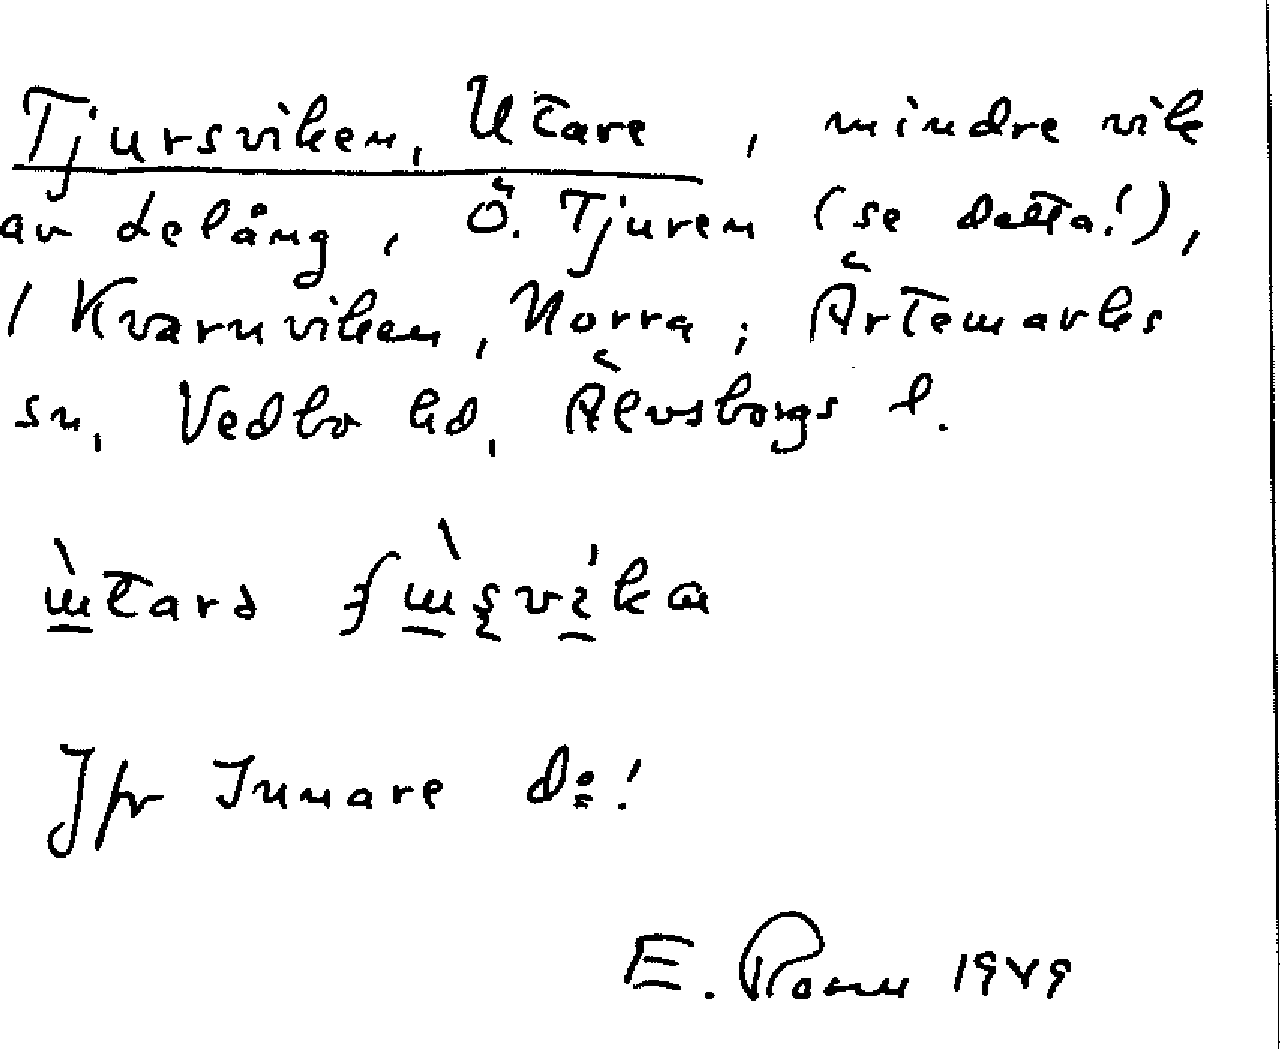 Tjursviken, Utare, mindre vik
av Lelång, Ö. Tjuren (se detta!),
/ Kvarnviken, Norra, Ärtemarks
sn, Vedbo hd, Älvsborgs l.
Jfr Innare do!
E. 1949